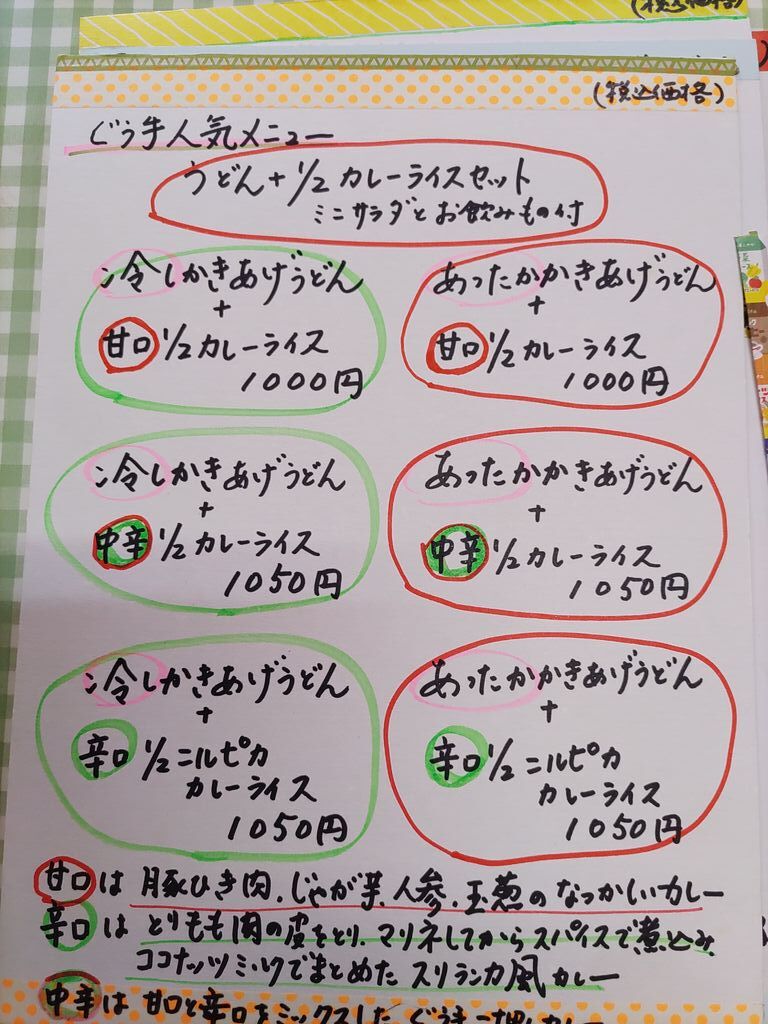 (税込価格)
(税込価格)
ぐう手人気メニュー
うどん+1/2カレーライスセット
ミニサラダとお飲みもの付
冷しかきあげうどん
+
甘口 1/2カレーライス
1000円
あったかかきあげうどん
+
甘口 1/2カレーライス
1000円
冷しかきあげうどん
+
中辛 1/2カレーライス
1050円
あったかかきあげうどん
+
中辛 1/2カレーライス
1050円
冷しかきあげうどん
+
辛口 1/2ニルピカ
カレーライス
1050円
あったかかきあげうどん
+
辛口 1/2ニルピカ
カレーライス
1050円
甘口は 豚ひき肉、じゃが芋、人参、玉葱のなつかしいカレー
辛口は とりもも肉の皮をとり、マリネしてからスパイスで煮込み
ココナッツミルクでまとめた スリランカ風カレー
中辛は 甘口と辛口をミックスした